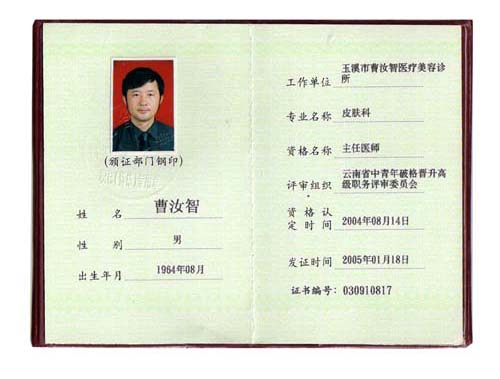 (颁证部门钢印)
姓 名 曹汝智
性 别 男
出生年月 1964年08月
工作单位 玉溪市曹汝智医疗美容诊
所
专业名称 皮肤科
资格名称 主任医师
评审组织 云南省中青年破格晋升高
级职务评审委员会
资 格 认
定 时 间 2004年08月14日
发证时间 2005年01月18日
证书编号: 030910817